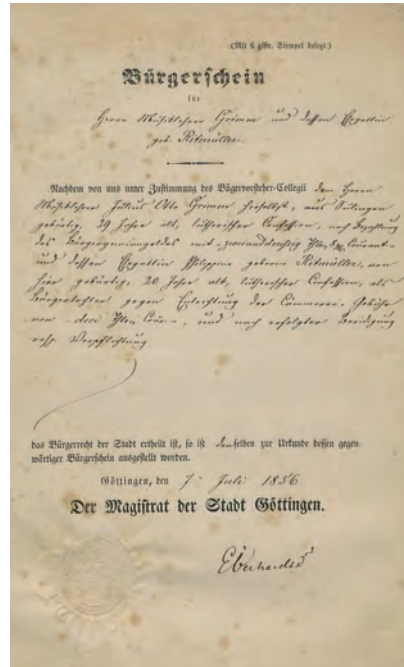 (Mit 6 gGr. Stempel belegt.)
Bürgerschein
für
Herrn Musiklehrer Grimm und dessen Ehegattin
geb. Ritmüller.
Nachdem von uns unter Zustimmung des Bürgervorsteher-Collegii dem Herrn
Musiklehrer Julius Otto Grimm hieselbst, aus
gebürtig, 29 Jahre alt, lutherischer Confession, nach Bezahlung
des Bürgergewinngeldes mit zweiunddreißig Courant
und dessen Ehegattin Philippine geborene Ritmüller, von
hier gebürtig, 20 Jahre alt, lutherischer Confession, als
Bürgertochter gegen Entrichtung der Gebühr
von drei und nach erfolgter Beeidigung
resp. Verpflichtung
das Bürgerrecht der Stadt ertheilt ist, so ist denselben zur Urkunde dessen gegen-
wärtiger Bürgerschein ausgestellt worden.
Göttingen, den 7. Juli 1856
Der Magistrat der Stadt Göttingen.